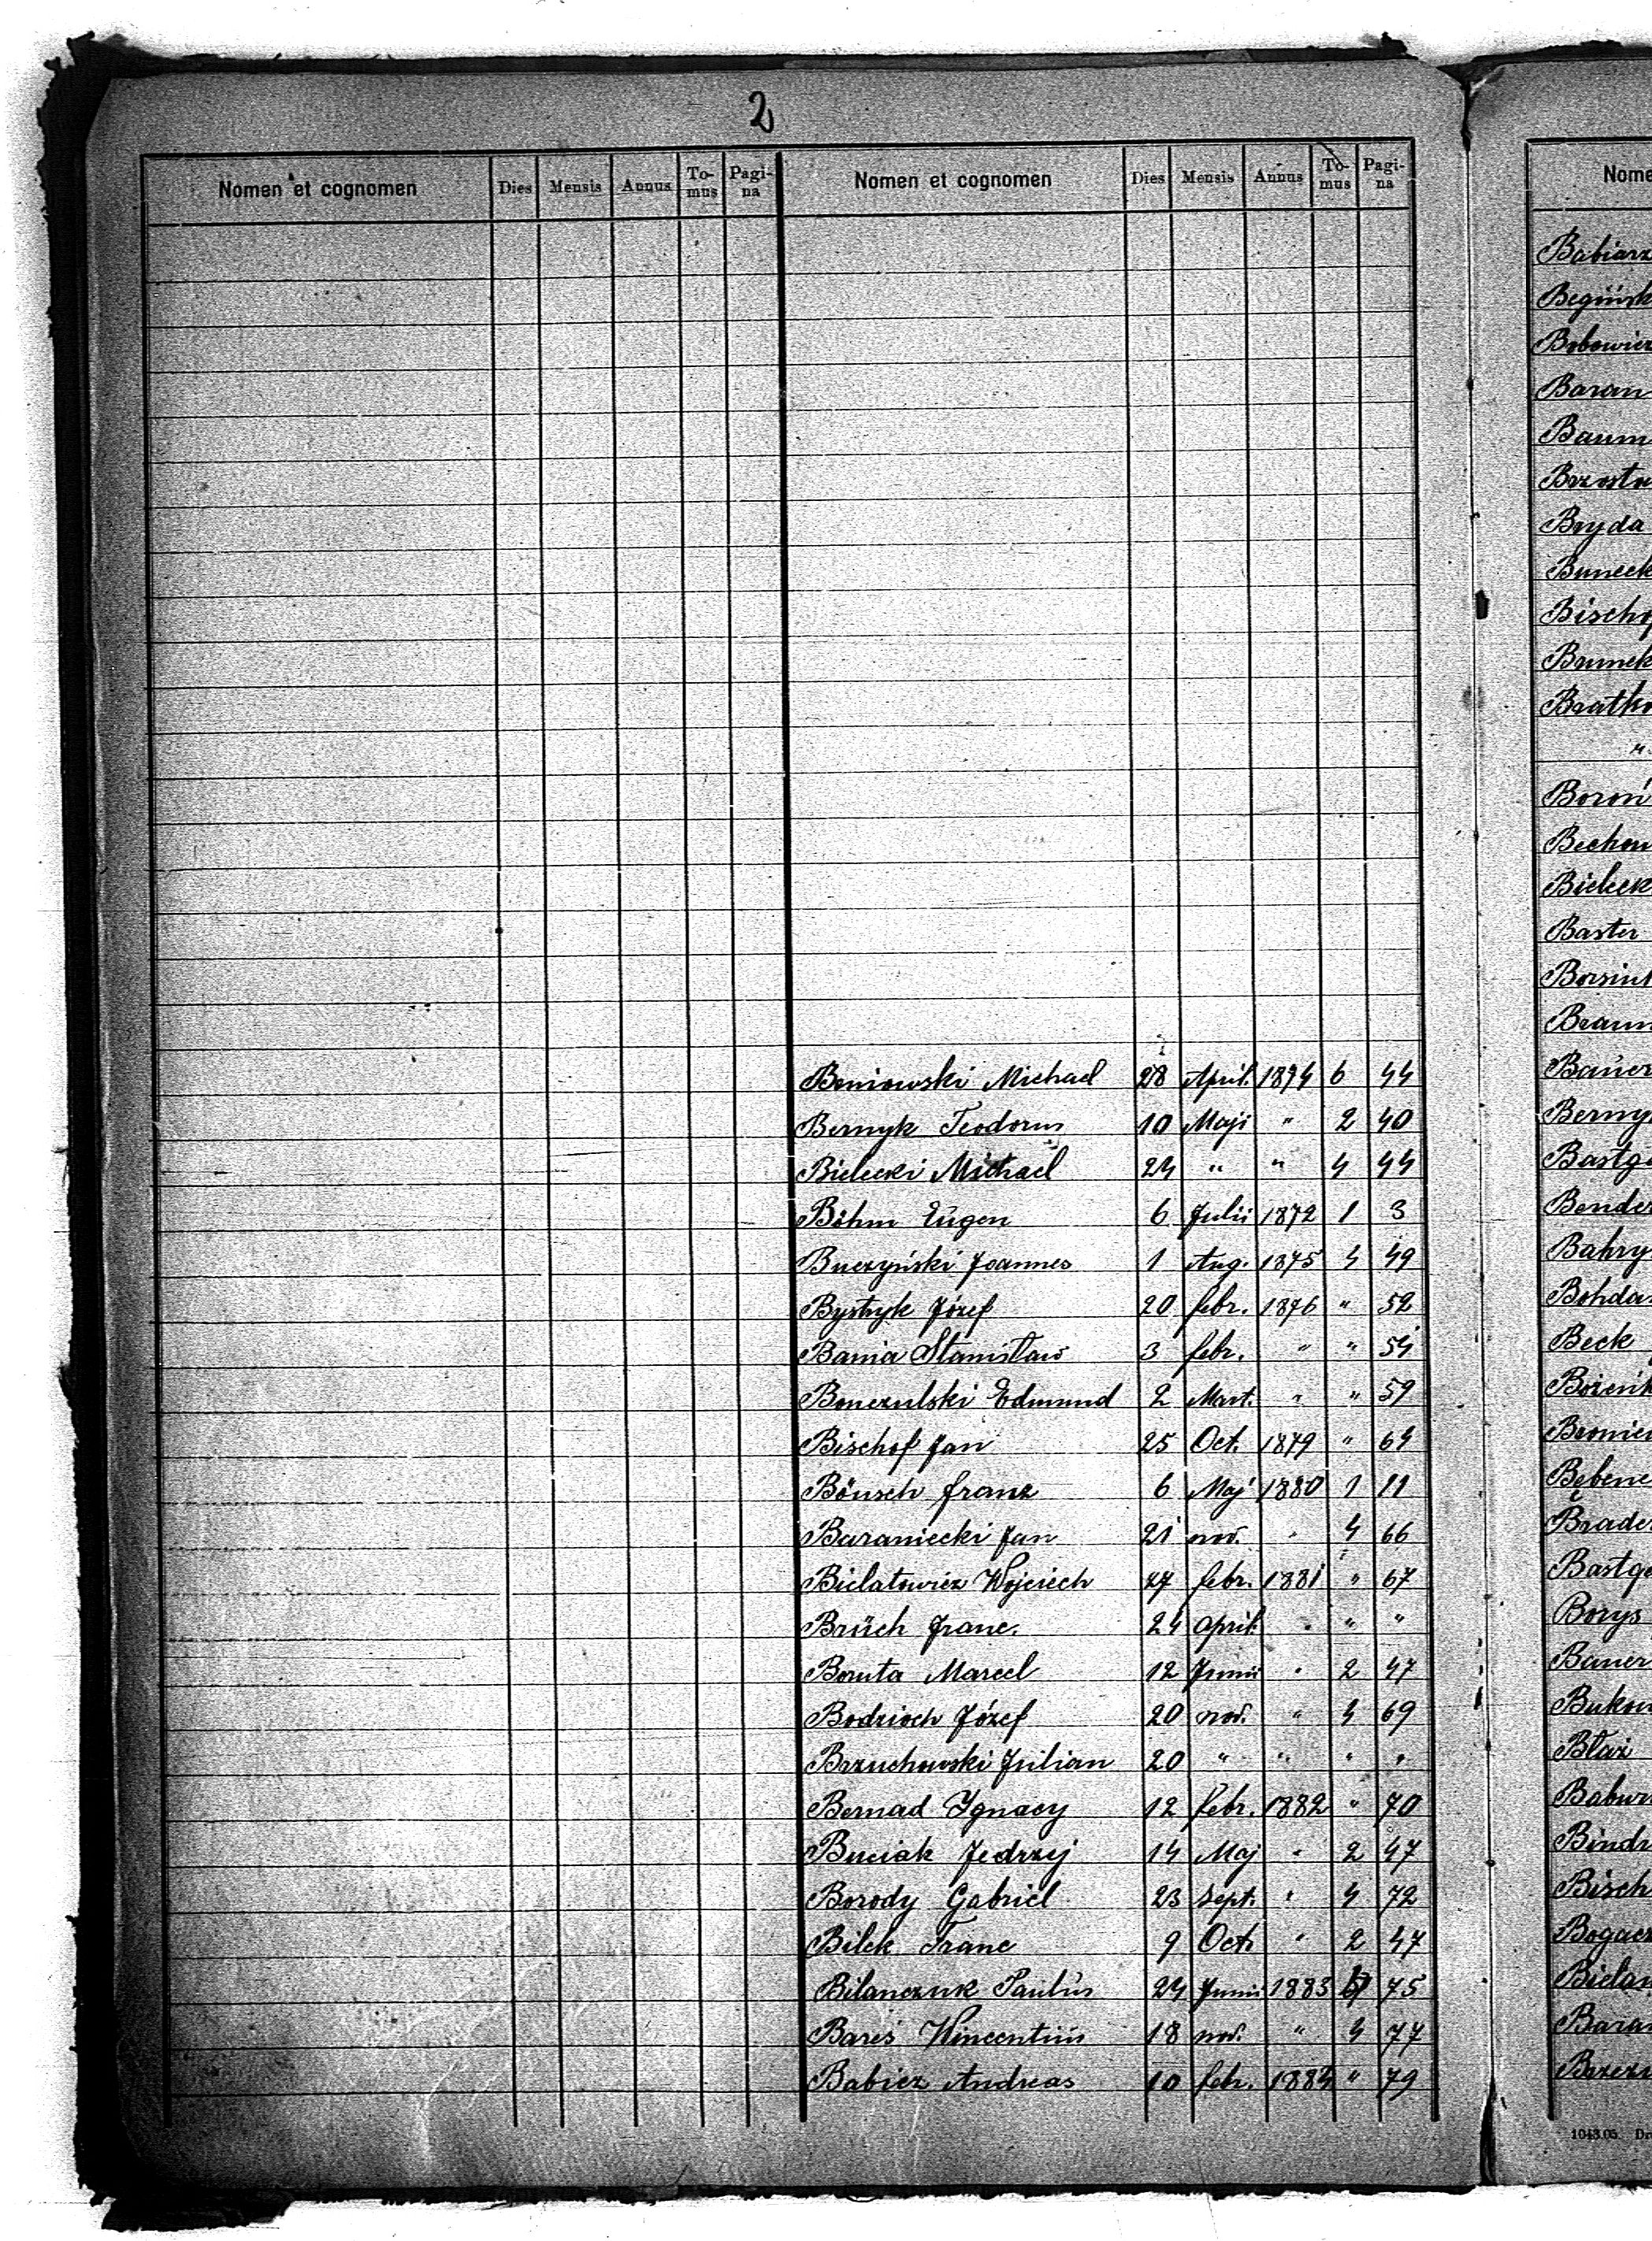 2
Nomen et cognomen Dies Mensis Annus To-mus Pagi-na Nomen et cognomen Dies Mensis Annus To-mus Pagi-na
Beniowski Michael 28 April. 1874 6 44
Bernyk Teodorus 10 Maji " 2 40
Bielecki Michael 24 " " 4 44
Böhm Eugen 6 Julii 1872 1 3
Buczyński Joannes 1 Aug. 1875 4 49
Bystryk Józef 20 febr. 1876 " 52
Bania Stanisław 3 febr. " " 54
Bonczulski Edmund 2 Mart. " " 59
Bischof Jan 25 Oct. 1879 " 64
Bönsch Franz 6 Maj 1880 1 11
Baraniecki Jan 21 nov. " 4 66
Bielatowicz Wojciech 27 febr. 1881 " 67
Brüch Franc. 24 April " " "
Boruta Marcel 12 Junii " 2 47
Bodzioch Józef 20 nov. " 4 69
Brzuchowski Julian 20 " " " "
Bernad Ignacy 12 febr. 1882 " 70
Buciak Jedrzej 14 Maj " 2 47
Borody Gabriel 23 Sept. " 4 72
Bilek Franc 9 Oct. " 2 47
Bilanczuk Paulus 24 Junii 1883 75
Bareś Wincentius 18 nov. " 4 77
Babicz Andreas 10 febr. 1884 " 79
Nome
Babiarz
Baran
Baum
Bryda
Bischof
Bratko
"
Boroń
Baster
Braun
Bauer
Berny
Bastge
Bender
Bahry
Bohda
Beck
Bębene
Brade
Bastge
Borys
Bauer
Bukow
Błaż
Bindr
Bisch
Bogacz
Bielan
Baran
1043.05. Dr